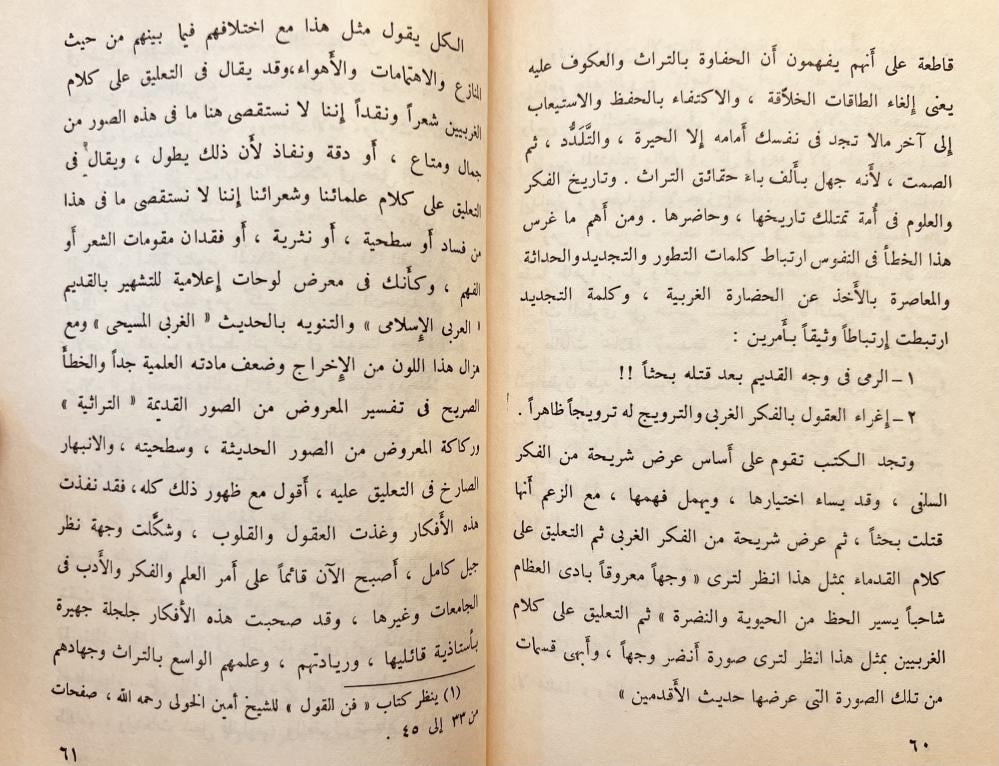 قاطعة على أنهم يفهمون أن الحفاوة بالتراث والعكوف عليه
يعنى إلغاء الطاقات الخلاَّقة ، والاكتفاء بالحفظ والاستيعاب
إلى آخر مالا تجد فى نفسك أمامه إلا الحيرة ، والتَّلَدُّد ، ثم
الصمت ، لأنه جهل بألف باء حقائق التراث . وتاريخ الفكر
والعلوم فى أُمة تمتلك تاريخها ، وحاضرها . ومن أهم ما غرس
هذا الخطأ فى النفوس ارتباط كلمات التطور والتجديد والحداثة
والمعاصرة بالأخذ عن الحضارة الغربية ، وكلمة التجديد
ارتبطت إرتباطاً وثيقاً بأمرين :
١ - الرمى فى وجه القديم بعد قتله بحثاً !!
٢ - إغراء العقول بالفكر الغربى والترويج له ترويجاً ظاهراً .
وتجد الكتب تقوم على أساس عرض شريحة من الفكر
السلفى ، وقد يساء اختيارها ، ويهمل فهمها ، مع الزعم أنها
قتلت بحثاً ، ثم عرض شريحة من الفكر الغربى ثم التعليق على
كلام القدماء بمثل هذا انظر لترى « وجهاً معروقاً بادى العظام
شاحباً يسير الحظ من الحيوية والنضرة » ثم التعليق على كلام
الغربيين بمثل هذا انظر لترى صورة أنضر وجهاً ، وأبهى قسمات
من تلك الصورة التى عرضها حديث الأقدمين »
٦٠
الكل يقول مثل هذا مع اختلافهم فيما بينهم من حيث
المنازع والاهتمامات والأهواء،وقد يقال فى التعليق على كلام
الغربيين شعراً ونقداً إننا لا نستقصى هنا ما فى هذه الصور من
جمال ومتاع ، أو دقة ونفاذ لأن ذلك يطول ، ويقال فى
التعليق على كلام علمائنا وشعرائنا إننا لا نستقصى ما فى هذا
من فساد أو سطحية ، أو نثرية ، أو فقدان مقومات الشعر أو
الفهم ، وكأنك فى معرض لوحات إعلامية للتشهير بالقديم
« العربى الإسلامى » والتنويه بالحديث « الغربى المسيحى » ومع
هزال هذا اللون من الإخراج وضعف مادته العلمية جداً والخطأ
الصريح فى تفسير المعروض من الصور القديمة « التراثية »
وركاكة المعروض من الصور الحديثة ، وسطحيته ، والانبهار
الصارخ فى التعليق عليه ، أقول مع ظهور ذلك كله، فقد نفذت
هذه الأفكار وغذت العقول والقلوب ، وشكَّلت وجهة نظر
جيل كامل ، أصبح الآن قائماً على أمر العلم والفكر والأدب فى
الجامعات وغيرها ، وقد صحبت هذه الأفكار جلجلة جهيرة
بأستاذية قائليها ، وريادتهم ، وعلمهم الواسع بالتراث وجهادهم
(١) ينظر كتاب « فن القول » للشيخ أمين الخولى رحمه الله ، صفحات
من ٣٣ إلى ٤٥ .
٦١